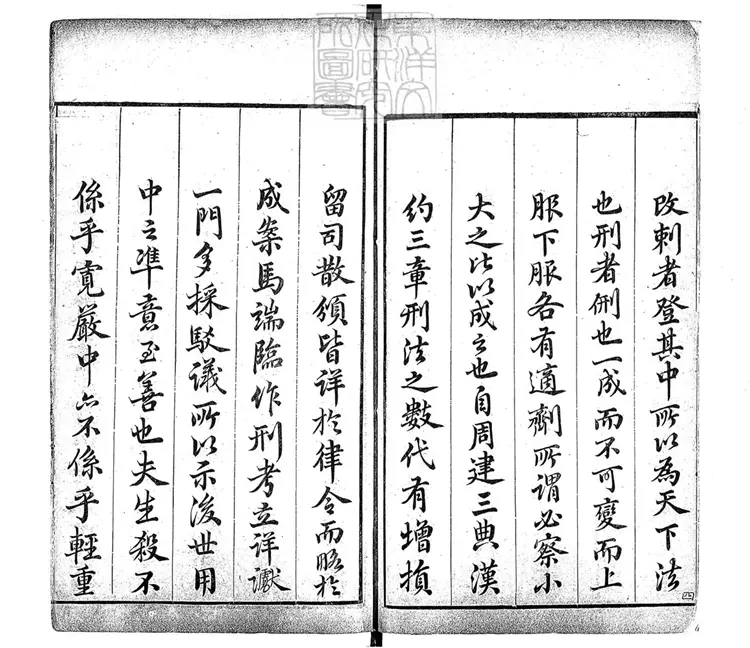 改刺者登其中所以為天下法
也刑者侀也一成而不可變而上
服下服各有適劑所謂必察小
大之比以成之也自周建三典漢
約三章刑法之數代有增損
留司散頒皆詳於律令而略於
成案馬端臨作刑考立詳讞
一門多採駁議所以示後世用
中之準意至善也夫生殺不
係乎寬嚴中亦不係乎輕重